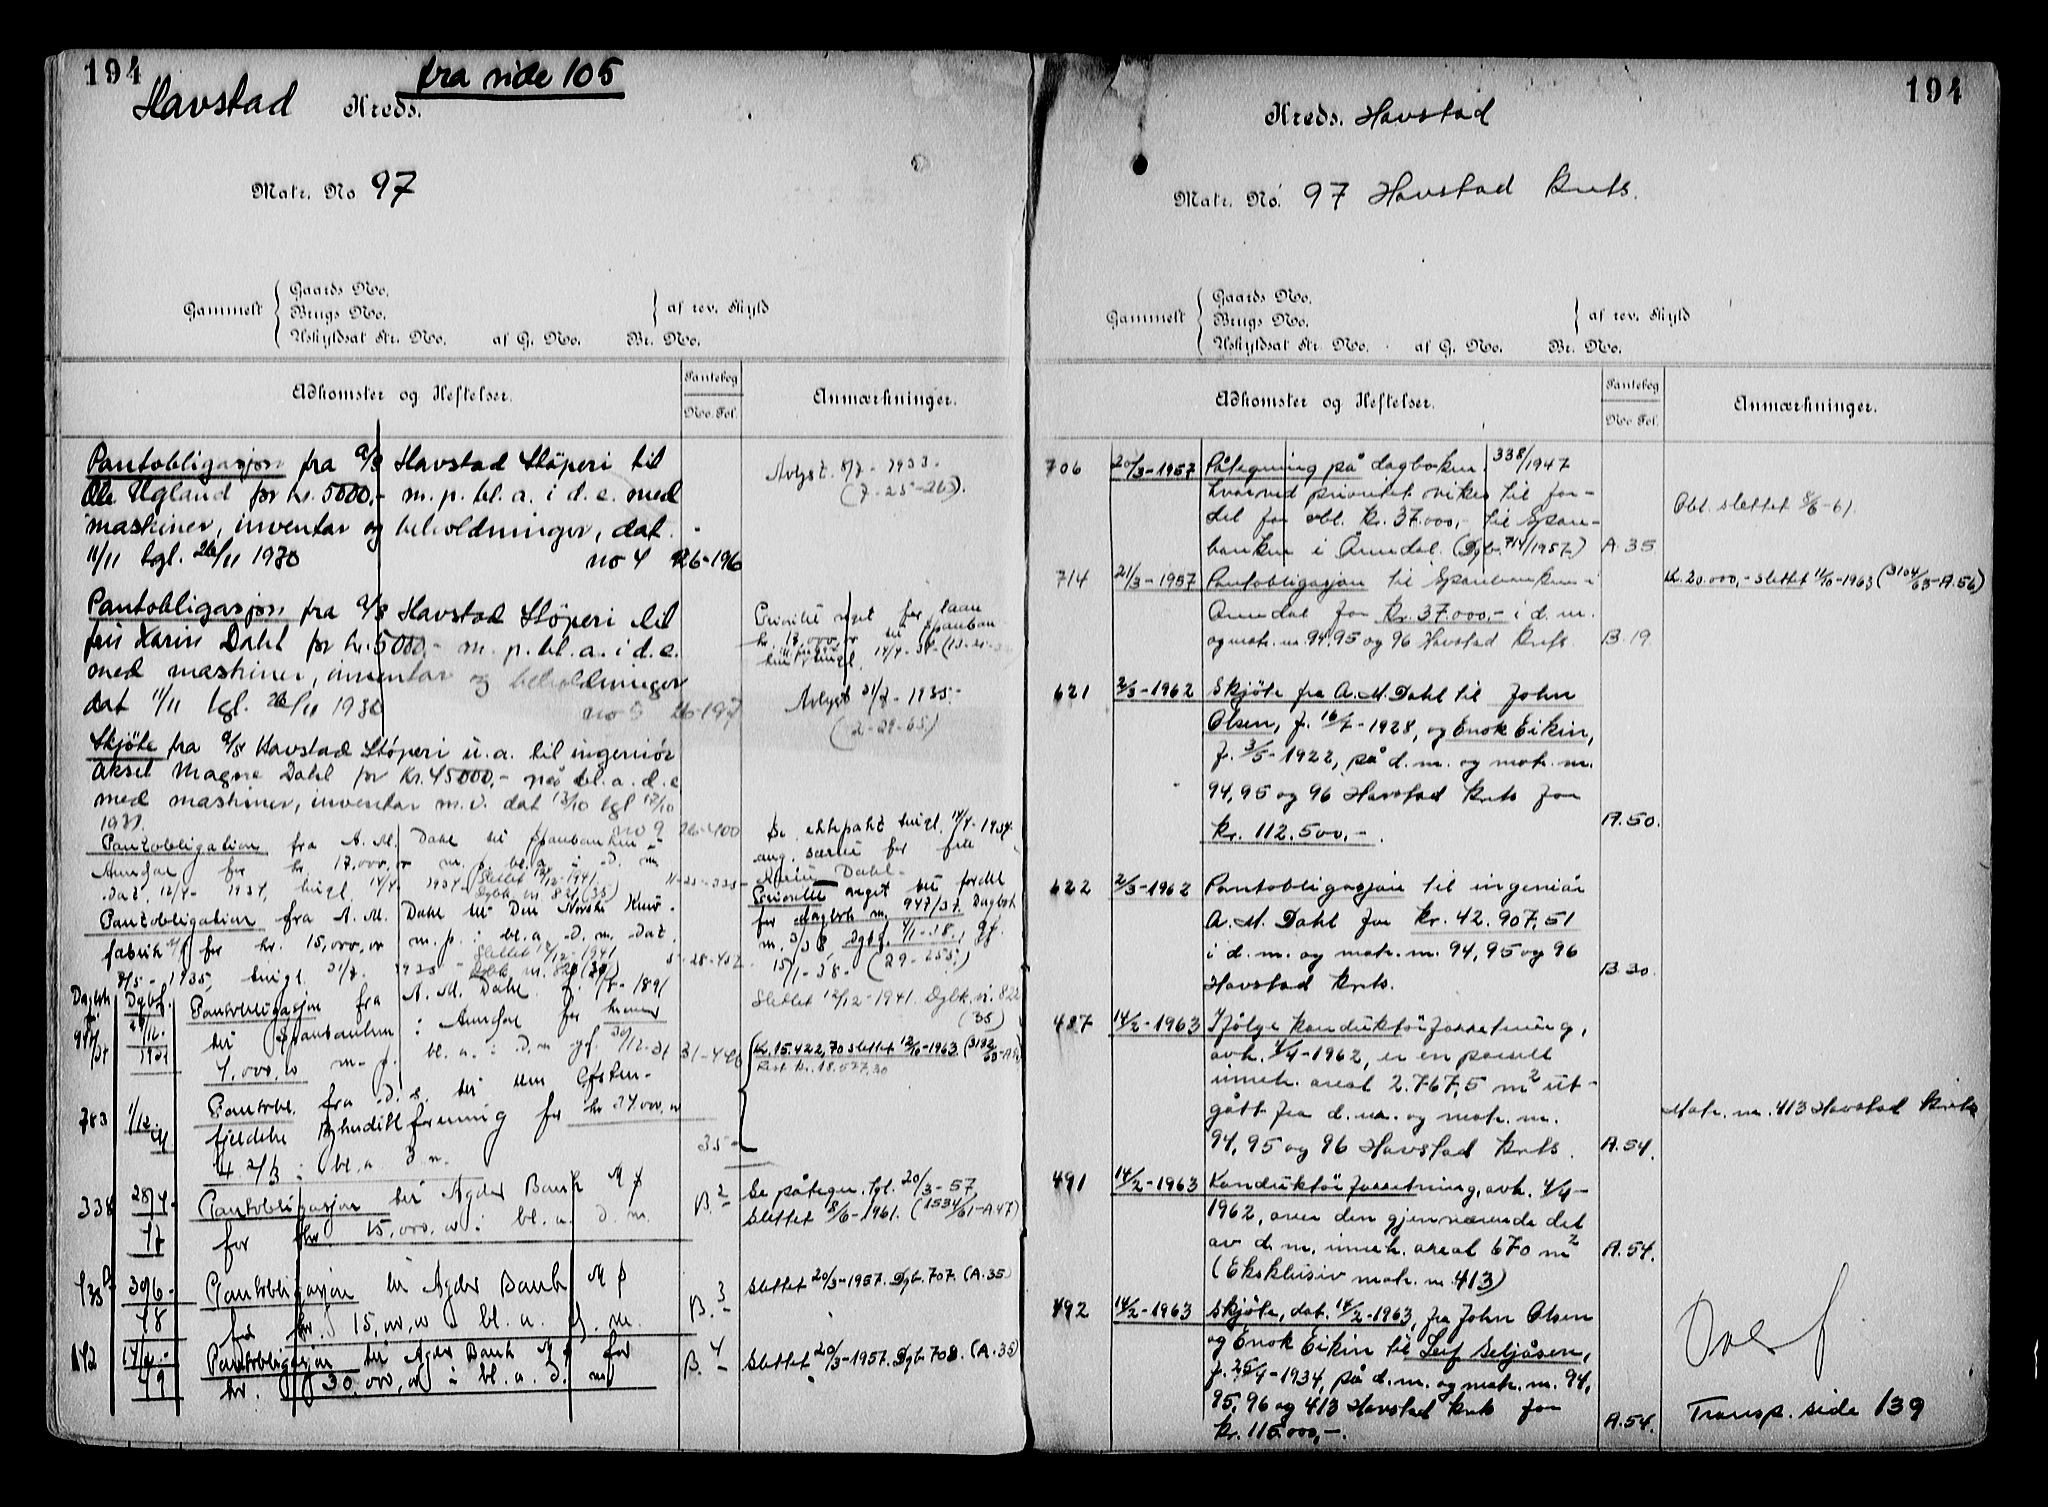 194
fra side 105
Havstad Kreds.
Matr. No 97
Gammelt
Gaards No.
Brugs No.
Uskyldsat Str. No. af G. No. Br. No.
af rev. Skyld
Adkomster og Heftelser.
Pantebog
No. Fol.
Anmærkninger.
Pantobligasjon fra a/s Havstad Støperi til
Ole Ugland for kr. 5000,- m. p. bl. a. i d. e. med
maskiner, inventar og beholdninger, dat.
11/11 tgl. 26/11 1930 no 4 26-196
Avlyst 8/7-1933-
(7-25-263).
Pantobligasjon fra a/s Havstad Støperi til
frk Karin Dahl for kr. 5000,- m. p. bl. a. i d. e.
med maskiner, inventar og beholdninger
dat 11/11 tgl. 26/11 1930 no 5 26-197
Prioritet veget for laan
Avlyst 31/7-1935-
(2-29-65)
Skjøte fra a/s Havstad Støperi u. a. til ingeniør
Aksel Magne Dahl for Kr. 45000,- på bl. a. d. e
med maskiner, inventar m. v. dat 13/10 tgl 17/10
1931. no 9 26-400
Pantobligation fra A. M. Dahl til Sparebanken i
Arendal for kr. 17.000,00 m. p. bl. a. i D. m
dat. 12/4- 1934, tingl. 14/4 1934-
Slettet 12/12-1941.
Dgbk. nr. 821 (35)
Se ektepakt tingl. 14/4-1934
ang. særeie for fru
Karin Dahl-
Pantobligation fra A. M. Dahl til Den Norske Knivfabrik
for kr. 15,000,00 m. p. i bl. a. D. m. Dat.
1935, tingl. 1935-
Slettet 12/12-1941
Prioritet veget til fordel
for dagbok nr. 947/37. Dagbok
15/1-38- (29-255)
Dagbok Dgbf.
947/37
1937
Pantobligasjon fra A. M. Dahl f. 1891
til Sparebanken i Arendal for kroner
7,000,00 m. p. bl. a. i D. m gf. 30/12-37 31-446
Slettet 12/12-1941. Dgbk. nr. 822
(35)
783 1/12-41
Pantobl. fra d. e. til den Østenfjeldske
Bykredittforening for kr 34.000,00
4 2/3 i bl. a. D. m. 35-
Kr. 15.422,70 slettet 12/10-1963
Rest kr. 18.577,30
338 28/4-47
Pantobligasjon til Agder Bank A/S
for kr. 15,000,00 i bl. a. D. m.
B. 2
Se påtegn. tgl. 20/3-57,
Slettet 8/6-1961. (1534/61-A47)
30/6-48
Pantobligasjon til Agder Bank A/S
for kr. 15,000,00 i bl. a. D. m.
B. 3
Slettet 20/3-1957. Dgb. 707. (A.35)
Pantobligasjon til Agder Bank A/S for
kr. 30.000,00 i bl. a. D. m
B. 4
Slettet 20/3-1957. Dgb. 708. (A.35)
194
Kreds. Havstad
Matr. No. 97 Havstad krets.
Gammelt
Gaards No.
Brugs No.
Uskyldsat Str. No. af G. No. Br. No.
af rev. Skyld
Adkomster og Heftelser.
Pantebog
No. Fol.
Anmærkninger.
706 20/3-1957 Påtegning på dagboknr. 338/1947
hvorved prioritet vikes til fordel
for obl. kr. 37.000,- til Sparebanken
i Arendal. (Dgb. 714/1957) A.35
Obl. slettet 8/6-61
714 21/3-1957 Pantobligasjon til Sparebanken i
Arendal for kr. 37.000,- i d. m.
og matr. nr. 94, 95 og 96 Havstad krets. B.19
Kr. 20.000,- slettet 11/10-1963 (3104/63-A.56)
621 2/3-1962 Skjøte fra A. M. Dahl til John
Olsen, f. 16/7-1928, og Enok Eikin,
f. 3/5-1922, på d. m. og matr. nr.
94, 95 og 96 Havstad krets for
kr. 112.500,-. A.50.
622 2/3-1962 Pantobligasjon til ingeniør
A. M. Dahl for kr. 42.907,51
i d. m. og matr. nr. 94, 95 og 96
Havstad krets. B.30.
487 14/2-1963 Ifølge konduktørforretning,
avh. 4/4-1962, er en parsell
inneh. areal 2.767,5 m² utgått
fra d. m. og matr. nr.
94, 95 og 96 Havstad krets. A.54.
Matr. nr. 413 Havstad krets
491 14/2-1963 Konduktørforretning, avh. 4/4-
1962, over den gjenværende del
av d. m. inneh. areal 670 m²
(Eksklusiv matr. nr. 413) A.54.
492 14/2-1963 Skjøte, dat. 14/2-1963, fra John Olsen
og Enok Eikin til Leif Seljåsen,
f. 25/4-1934, på d. m. og matr. nr. 94,
95, 96 og 413 Havstad krets for
kr. 115.000,-. A.54.
Overf
Transp. side 139